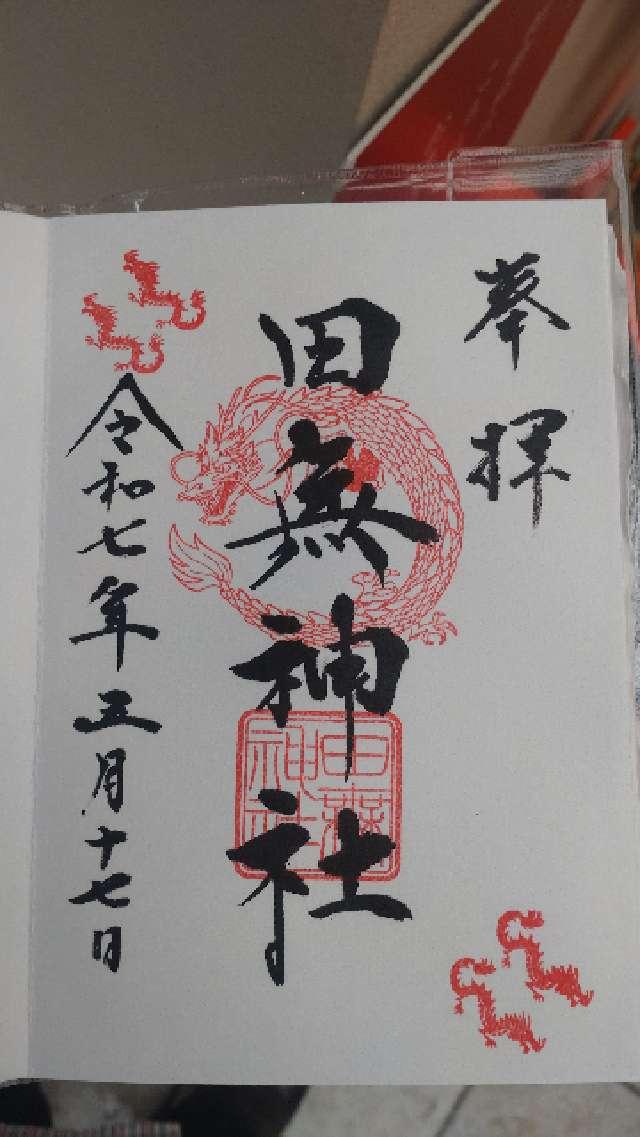 奉拝
田無神社
田無神社
令和七年五月十七日